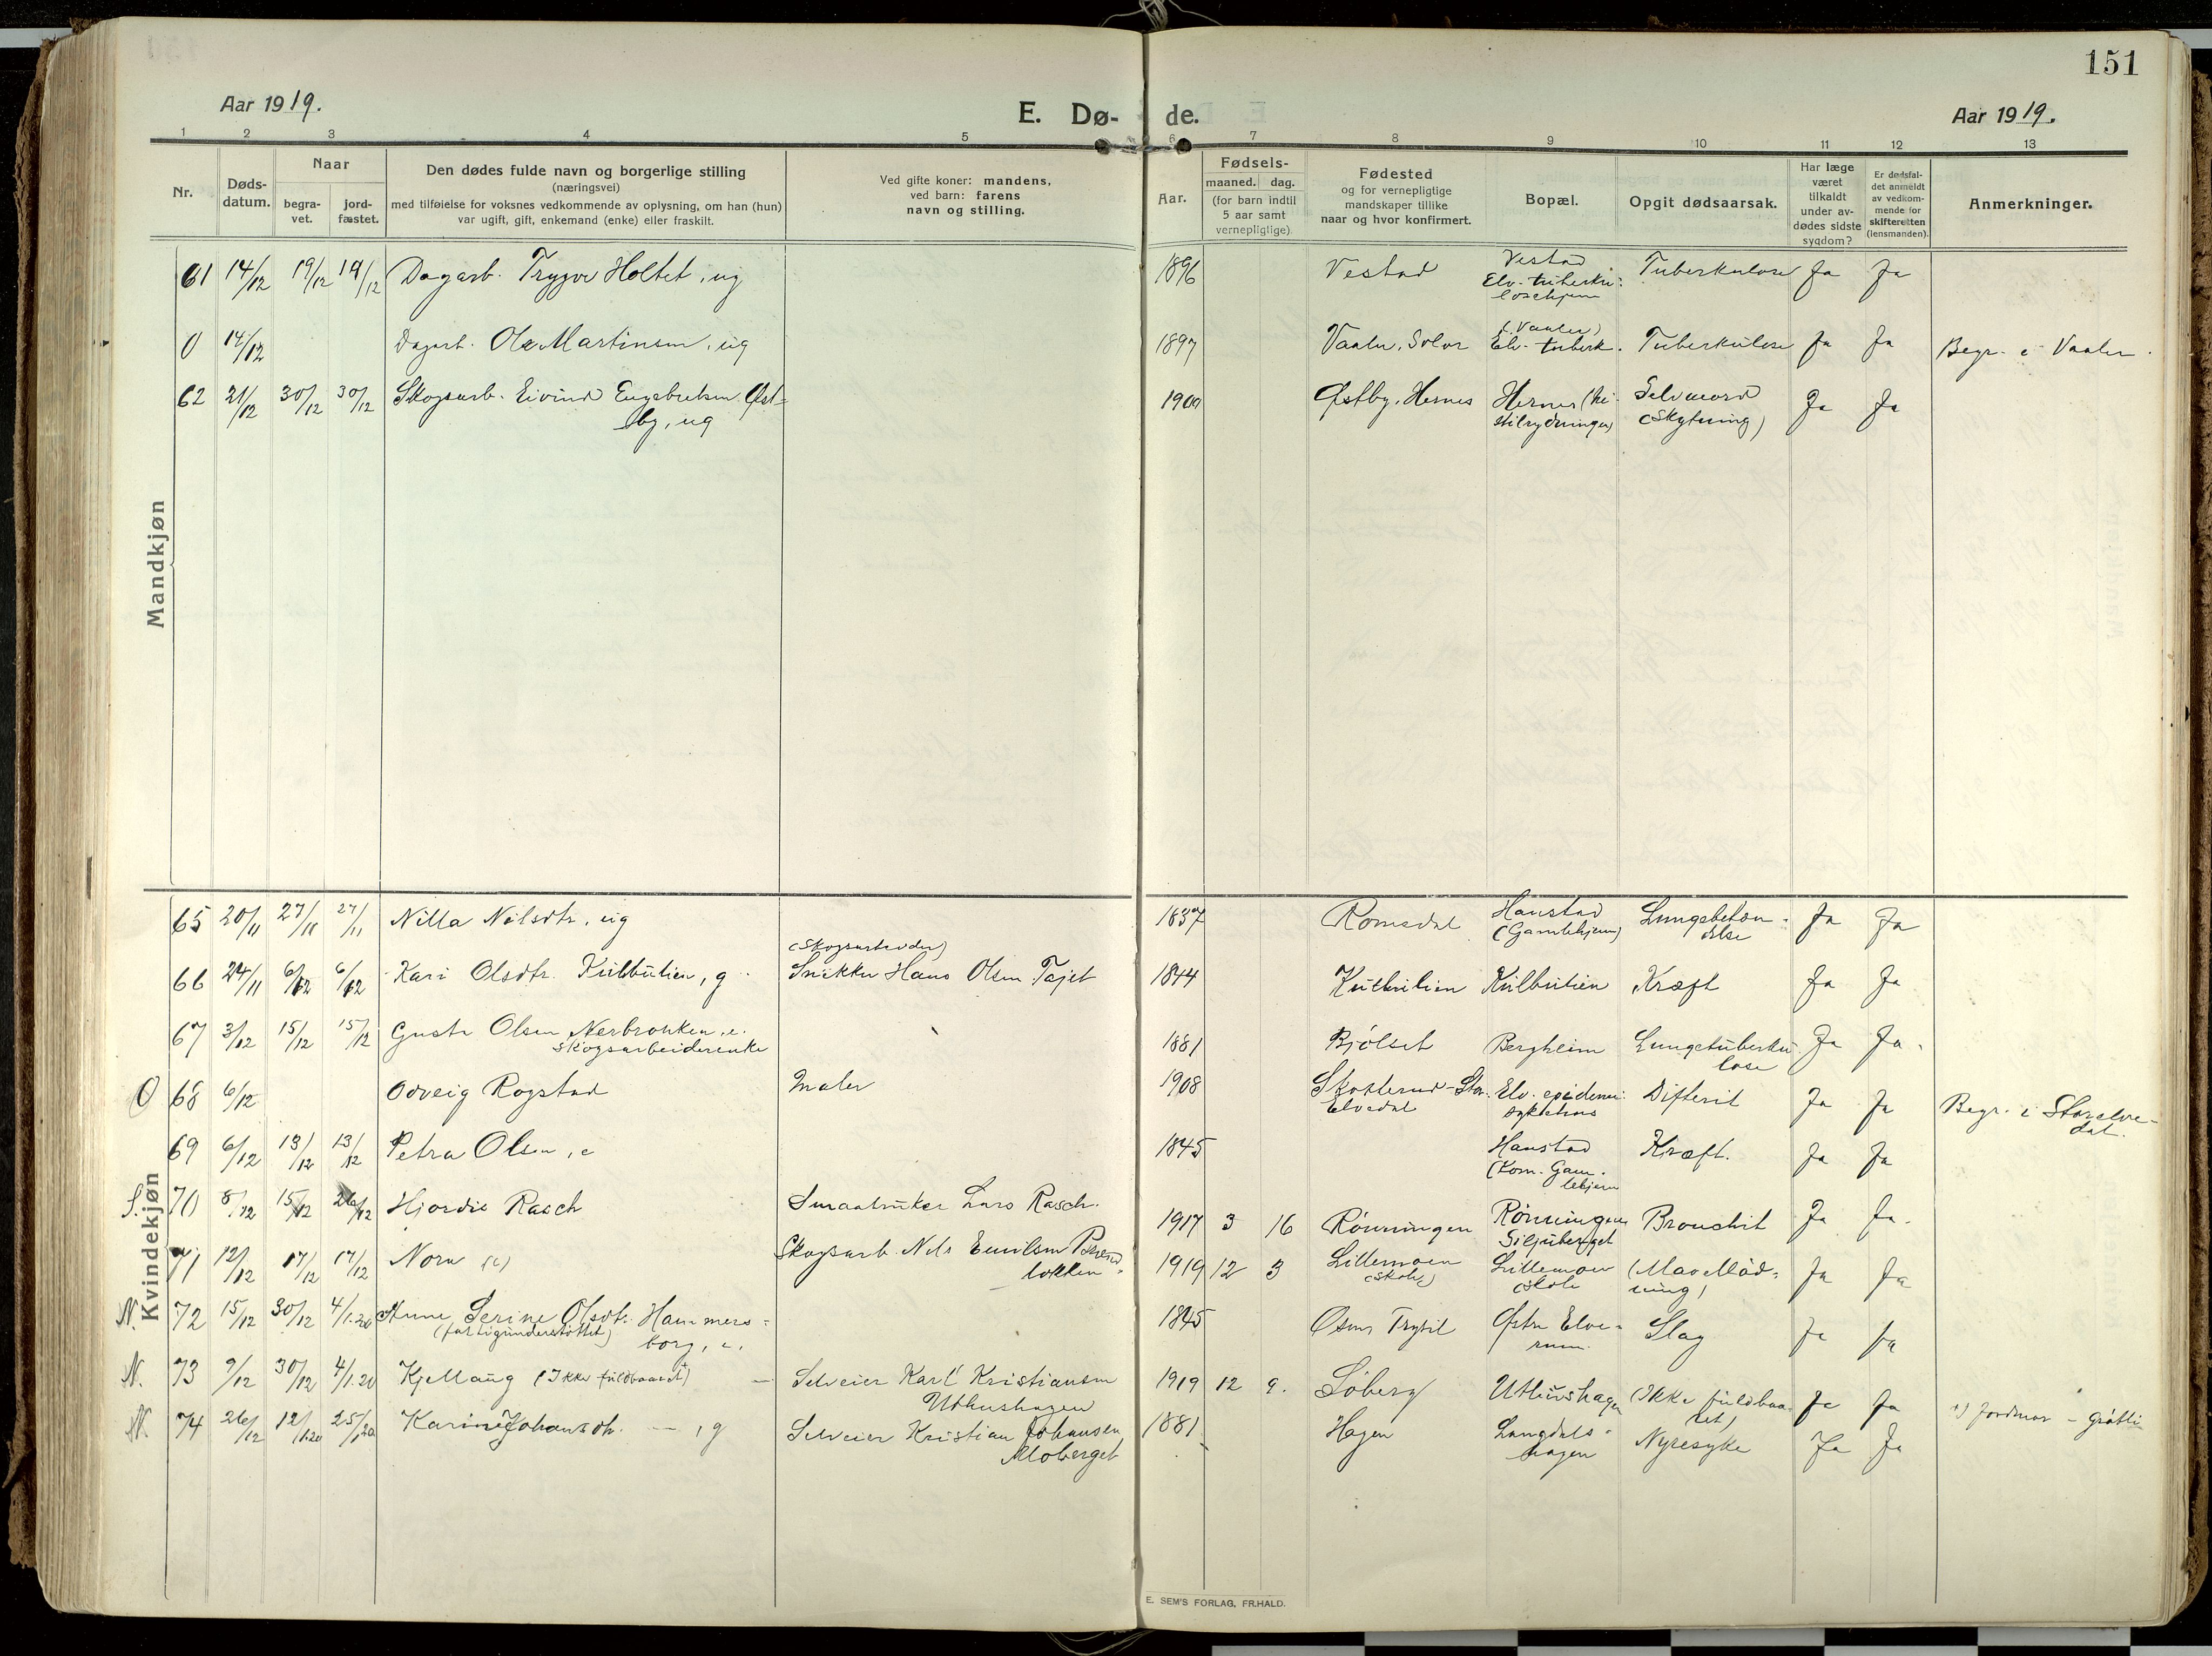 151
Aar 1919.
E. Dø- de.
Aar 1919.
1 2 3 4 5 6 7 8 9 10 11 12 13
Nr.
Døds-
datum.
Naar
begra-
vet.
jord-
fæstet.
Den dødes fulde navn og borgerlige stilling
(næringsvei)
med tilføielse for voksnes vedkommende av oplysning, om han (hun)
var ugift, gift, enkemand (enke) eller fraskilt.
Ved gifte koner: mandens,
ved barn: farens
navn og stilling.
Aar.
Fødsels-
maaned. dag.
(for barn indtil
5 aar samt
vernepligtige).
Fødested
og for vernepligtige
mandskaper tillike
naar og hvor konfirmert.
Bopæl.
Opgit dødsaarsak.
Har læge
været
tilkaldt
under av-
dødes sidste
sygdom?
Er dødsfal-
det anmeldt
av vedkom-
mende for
skifteretten
(lensmanden).
Anmerkninger.
Mandkjøn
61 14/12 19/12 19/12 Dagarb. Trygve Holtet, ug 1896 Vestad Vestad Tuberkulose Ja Ja
Elv. tuberku-
losehjem
0 14/12 Dagarb. Ole Martinsen, ug 1897 Vaaler, Solør (Vaaler) Tuberkulose Ja Ja Begr. i Vaaler.
Elv. tuberk.
62 21/12 30/12 30/12 Skogsarb. Eivind Engebretsen Øst-
by, ug 1900 Østby, Hernes Hernes Selvmord Ja Ja
(Skytning)
Kvindekjøn
65 20/11 27/11 27/11 Nilla Nilsdtr, ug 1837 Romsdal Hanstad Lungebetæn- Ja Ja
(Gamlehjem) delse
66 24/11 6/12 6/12 Kari Olsdtr. Kulbulien, g (Skogsarbeider)
Snikker Hans Olsen Tajet 1844 Kulbulien Kulbulien Kræft Ja Ja
67 3/12 15/12 15/12 Olsen Nerbrokken, e.
skogsarbeiderenke 1881 Bjølset Bergheim Lungetuberku- Ja Ja.
lose
0 68 6/12 Odveig Rogstad Maler 1908 Skotterud-Stor- Elv. epidemi- Difterit Ja Ja Begr. i Storelve-
Elvedal sykehus dal.
69 6/12 13/12 13/12 Petra Olsen, e 1845 Hanstad Kræft. Ja Ja
(Kom. Gam-
lehjem
S. 70 8/12 15/12 26/12 Hjordis Rasch Smaabruker Lars Rasch. 1917 3 16 Rønningen Rønningen Bronchit Ja Ja.
Siljuberget
71 12/12 17/12 17/12 Nora Skogsarb. Nils Emilsen
løkken 1919 12 3 Lillemoen Lillemoen Ja Ja
(skole) skole
N. 72 15/12 30/12 4/1.20 Anne Serine Olsdtr. Hammers-
(fattigunderstøttet) borg, e. 1845 Osen Trysil Østre Elve- Slag Ja Ja
rum.
N. 73 9/12 30/12 4/1.20 Kjellaug (Ikke fuldbaaret) Selveier Karl Kristiansen
Uthushagen 1919 12 9. Søberg Uthushagen (Ikke fuldbaa- Ja Ja
ret)
N 74 26/12 12/1.20 25/1.20 Karine Johansdtr. — , g Selveier Kristian Johansen,
Moberget 1881 Hagen Langdals- Nyresyke Ja Ja
hagen
1) Jordmor
E. SEM'S FORLAG, FR.HALD.